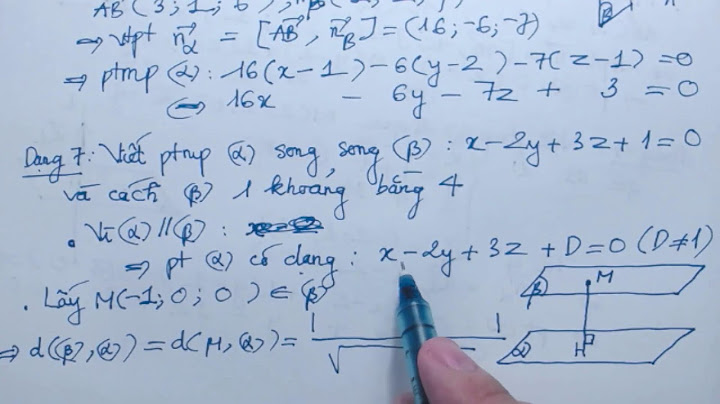 AB (3; 1; 6)
=> vtpt n_α = [AB, n_β] = (16; -6; -7)
=> ptmp (α): 16(x-1) - 6(y-2) - 7(z-1) = 0
<=> 16x - 6y - 7z + 3 = 0
Dạng 7: Viết ptmp (α) song song (β): x-2y+3z+1=0
và cách (β) 1 khoảng bằng 4
. Vì (α) // (β):
=> pt (α) có dạng: x-2y+3z+D=0 (D≠1)
. Lấy M(-1; 0; 0) ∈ (β)
=> d((β), (α)) = d(M, (α)) = | | / √
β M
α H